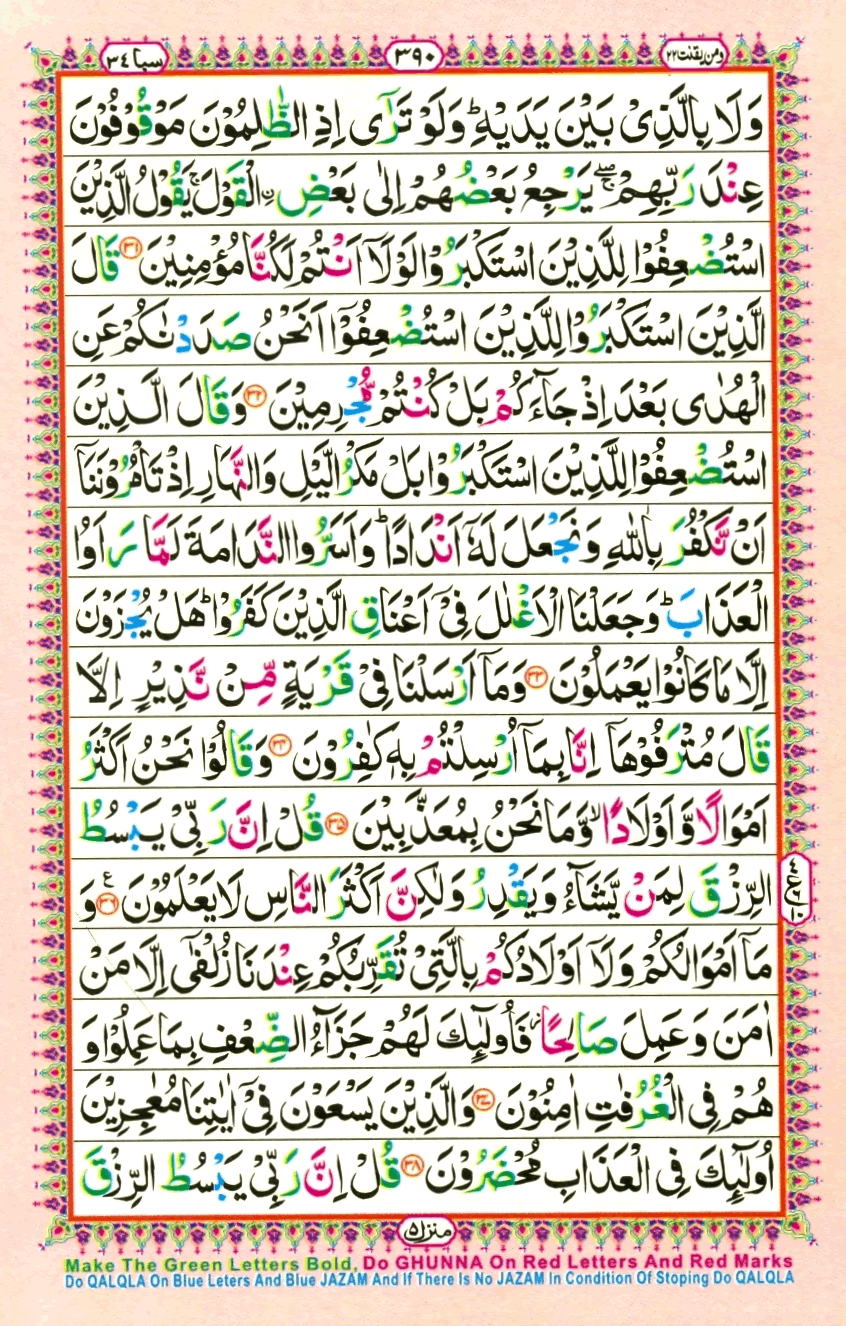 ومن یقنت ۲۲
۳۹۰
سبا ۳٤
وَلَا بِالَّذِیْ بَیْنَ یَدَیْهِ ؕ وَلَوْ تَرٰۤی اِذِ الظّٰلِمُوْنَ مَوْقُوْفُوْنَ
عِنْدَ رَبِّهِمْ ۖۚ یَرْجِعُ بَعْضُهُمْ اِلٰی بَعْضِ ِ۟الْقَوْلَ ۚ یَقُوْلُ الَّذِیْنَ
اسْتُضْعِفُوْا لِلَّذِیْنَ اسْتَكْبَرُوْا لَوْلَاۤ اَنْتُمْ لَكُنَّا مُؤْمِنِیْنَ ۳۱ قَالَ
الَّذِیْنَ اسْتَكْبَرُوْا لِلَّذِیْنَ اسْتُضْعِفُوْۤا اَنَحْنُ صَدَدْنٰكُمْ عَنِ
الْهُدٰی بَعْدَ اِذْ جَآءَكُمْ بَلْ كُنْتُمْ مُّجْرِمِیْنَ ۳۲ وَقَالَ الَّذِیْنَ
اسْتُضْعِفُوْا لِلَّذِیْنَ اسْتَكْبَرُوْا بَلْ مَكْرُ الَّیْلِ وَالنَّهَارِ اِذْ تَاْمُرُوْنَنَاۤ
اَنْ نَّكْفُرَ بِاللّٰهِ وَنَجْعَلَ لَهٗۤ اَنْدَادًا ؕ وَاَسَرُّوا النَّدَامَةَ لَمَّا رَاَوُا
الْعَذَابَ ؕ وَجَعَلْنَا الْاَغْلٰلَ فِیْۤ اَعْنَاقِ الَّذِیْنَ كَفَرُوْا ؕ هَلْ یُجْزَوْنَ
اِلَّا مَا كَانُوْا یَعْمَلُوْنَ ۳۳ وَمَاۤ اَرْسَلْنَا فِیْ قَرْیَةٍ مِّنْ نَّذِیْرٍ اِلَّا
قَالَ مُتْرَفُوْهَاۤ اِنَّا بِمَاۤ اُرْسِلْتُمْ بِهٖ كٰفِرُوْنَ ۳٤ وَقَالُوْا نَحْنُ اَكْثَرُ
اَمْوَالًا وَّاَوْلَادًا ۙ وَّمَا نَحْنُ بِمُعَذَّبِیْنَ ۳۵ قُلْ اِنَّ رَبِّیْ یَبْسُطُ
الرِّزْقَ لِمَنْ یَّشَآءُ وَیَقْدِرُ وَلٰكِنَّ اَكْثَرَ النَّاسِ لَا یَعْلَمُوْنَ ۳۶ ع وَ
مَاۤ اَمْوَالُكُمْ وَلَاۤ اَوْلَادُكُمْ بِالَّتِیْ تُقَرِّبُكُمْ عِنْدَنَا زُلْفٰۤی اِلَّا مَنْ
اٰمَنَ وَعَمِلَ صَالِحًا ۫ فَاُولٰٓئِكَ لَهُمْ جَزَآءُ الضِّعْفِ بِمَا عَمِلُوْا وَ
هُمْ فِی الْغُرُفٰتِ اٰمِنُوْنَ ۳۷ وَالَّذِیْنَ یَسْعَوْنَ فِیْۤ اٰیٰتِنَا مُعٰجِزِیْنَ
اُولٰٓئِكَ فِی الْعَذَابِ مُحْضَرُوْنَ ۳۸ قُلْ اِنَّ رَبِّیْ یَبْسُطُ الرِّزْقَ
منزل ۵
Make The Green Letters Bold, Do GHUNNA On Red Letters And Red Marks
Do QALQLA On Blue Leters And Blue JAZAM And If There Is No JAZAM In Condition Of Stoping Do QALQLA